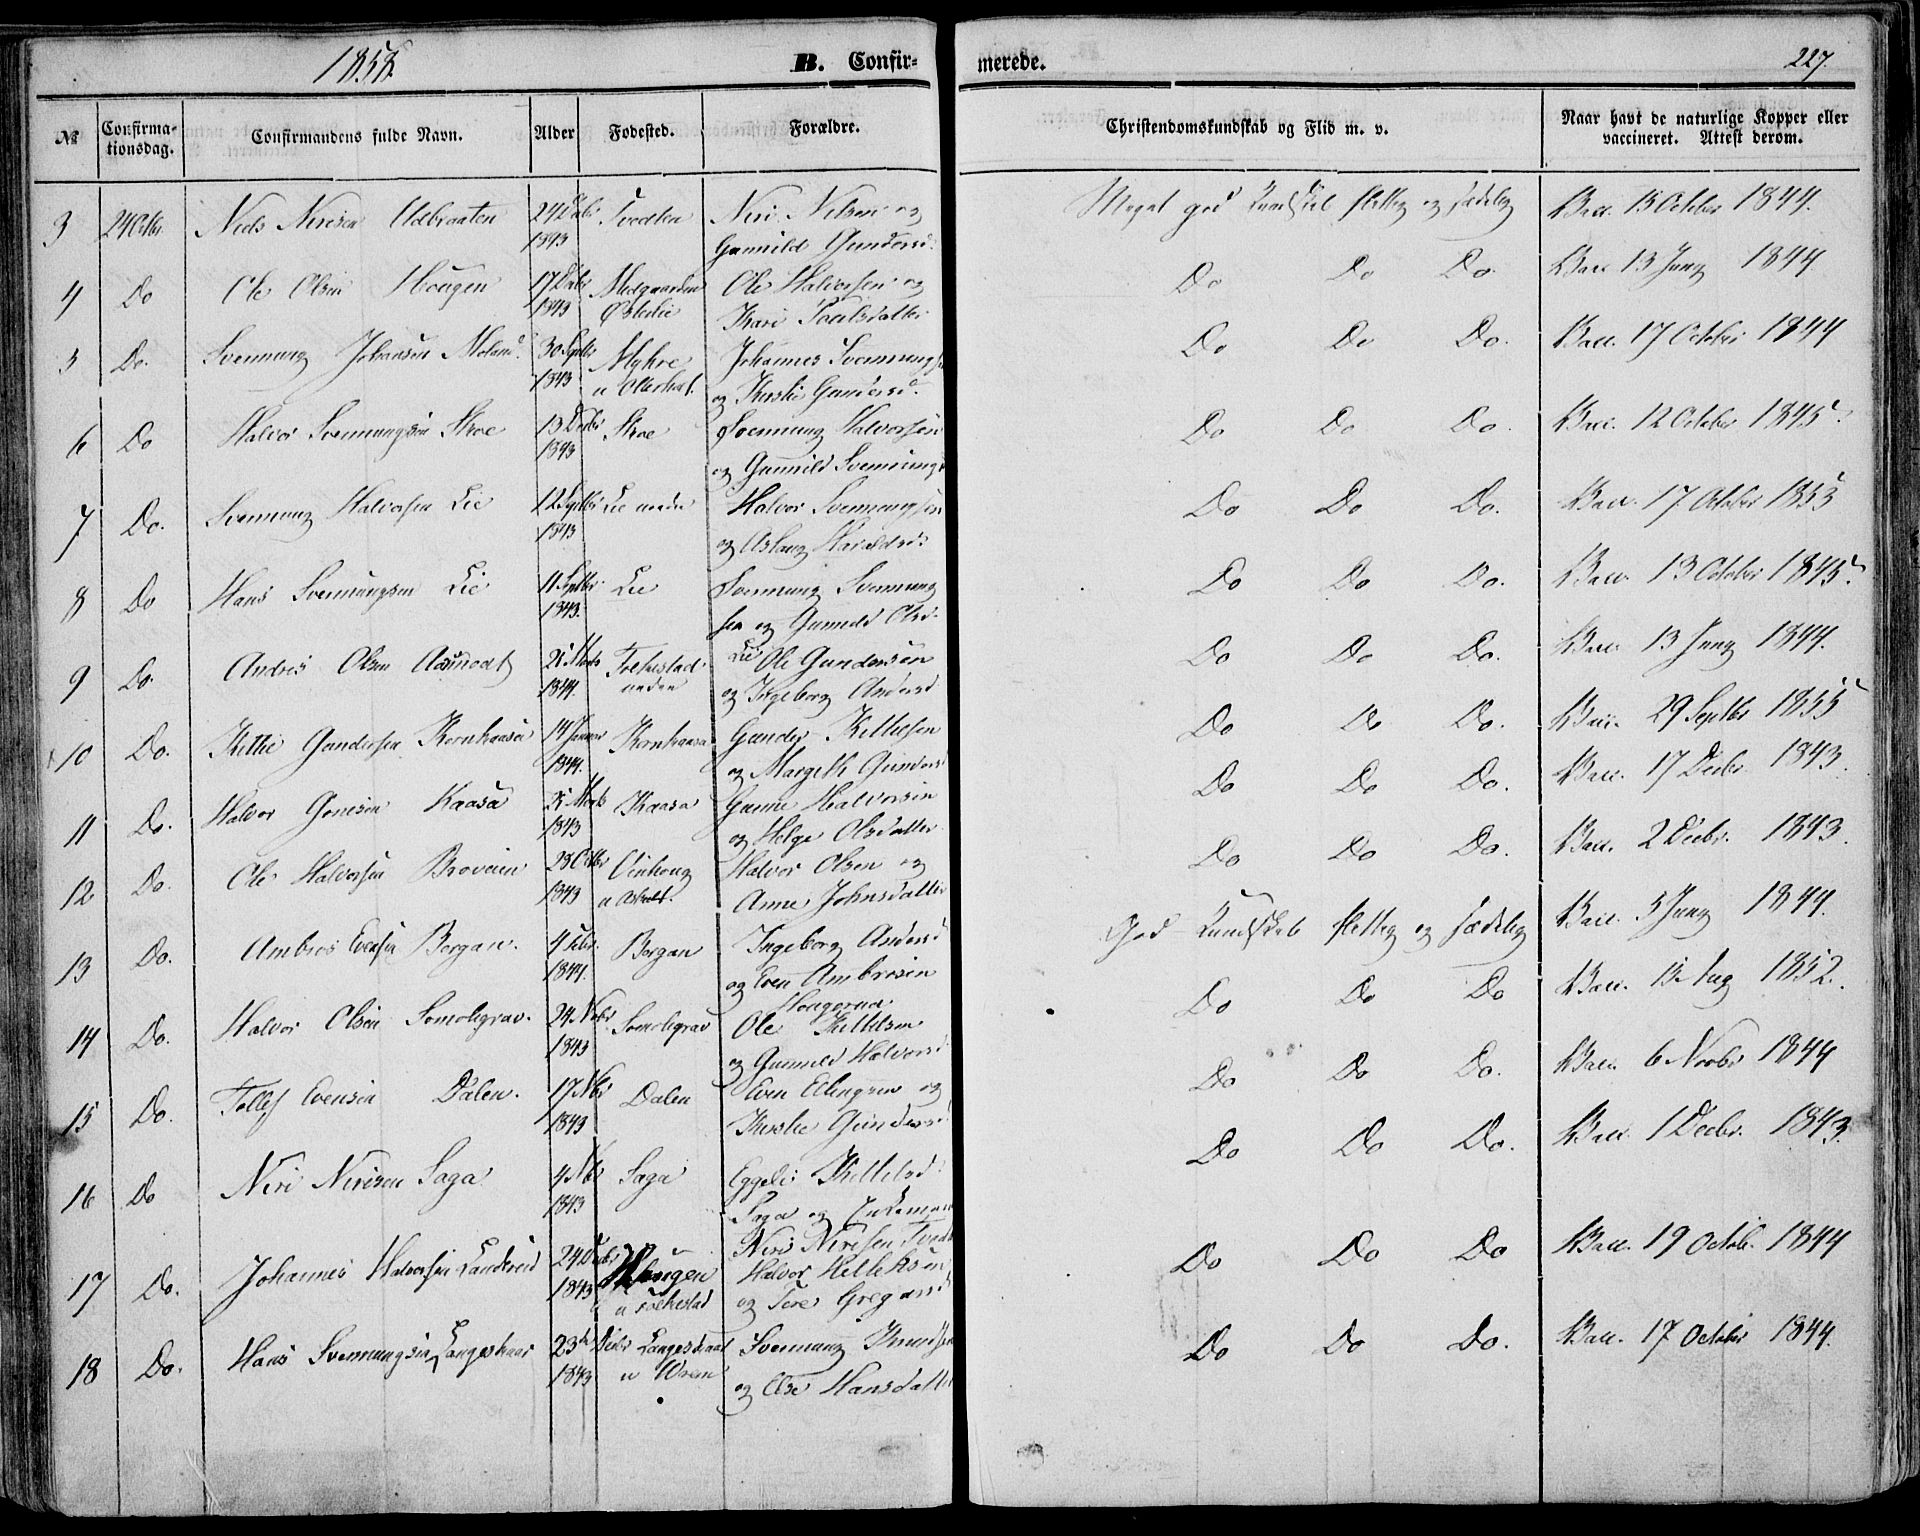 1858.
B. Confir-
merede.
227.
№
Confirma-
tionsdag.
Confirmandens fulde Navn.
Alder
Fodested.
Forældre.
Christendomskundskab og Flid m. v.
Naar havt de naturlige Kopper eller
vaccineret. Attest derom.
3 24 Octbr. Niels Nirisen 24 1843 Tvedten Niri Nilsen og
Gunnild Gundersd: Meget god flittig og sædelig Vacc. 15 October 1844.
4 Do Ole Olsen Hougen 17 1843 Østerlie Ole Halvorsen og
Kari Poulsdatter Do Do Do. Vacc 13 Juny 1844
5 Do. Svennung Johansen Moland. 30 Septbr 1843 Myhre Johannes Svennungse
og Kirsti Gundersd. Do Do Do. Vacc. 17 October 1844
6 Do Halvor Svennungsen Stroe 13 Decbr 1843 Stroe Svennung Halvorsen
og Gunnild Svennungs Do Do Do. Vacc. 12 October 1845.
7 Do. Svennung Halvorsen Lie 12 Septbr 1843 Lie nedre Halvor Svennungsen
og Aslaug Haraldsd: Do Do Do. Vacc. 17 October 1853
8 Do Hans Svennungsen Lie 11 Septbr. 1843. Lie Svennung Svennung
sen og Gunnild Olsd.
Lie Do Do Do. Vacc. 13 October 1845.
9 Do Andres Olsen 1844. Folkestad Ole Gundersen
og Ingeborg Andersd Do Do Do. Vacc. 13 Juny 1844.
10 Do. Kittil Gundersen Kornkaasa 14 Januar 1844. Kornkaasa Gunder Kittilsen
og Margeth Gunders Do Do Do. Vacc. 29 Septbr 1855
11 Do. Halvor Gonesen Kaasa 1843 Kaasa Gunne Halvorsen
og Helge Olsdatter Do Do Do. Vacc. 17 Decbr. 1843.
12 Do. Ole Halvorsen Broveien 28 Octbr 1843 Halvor Olsen og
Anne Johnsdatter Do Do Do. Vacc. 2 Decbr. 1843.
13 Do. Ambros Evensen Borgan. 4 Febr. 1844. Borgan Ingeborg Andersd
og Even Ambrosen God Kundskab flittig og sædelig Vacc. 5 Juny 1844.
14 Do. Halvor Olsen Somoligrav. 24 Nvbr 1843 Somoligrav Ole Kittilsen
og Gunnild Halvorsd Do Do Do Vacc. 13 Aug 1852.
15 Do. Tollef Evensen Dalen. 17 Nbr 1843 Dalen Even Ellingsen og
Kirstie Gundersd Do Do Do. Vacc. 6 Novbr 1844
16 Do Niri Nirisen Saga 4 Nbr 1843 Saga Eggeli Kittilsd.
Saga og Enkemand
Niri Nirisen Tvedt Do Do Do. Vacc. 1 Decbr. 1843.
17 Do. Johannes Halvorsen 24 1843 Hougen u Folkestad Halvor
og Tore Gregarsd Do Do Do Vacc. 19 Octob. 1844
18 Do. Hans Svennungsen Langeskaas 23de Decbr 1843 Svennung Knudsen
og Else Hansdatte Do Do Do. Vacc. 17 October 1844.